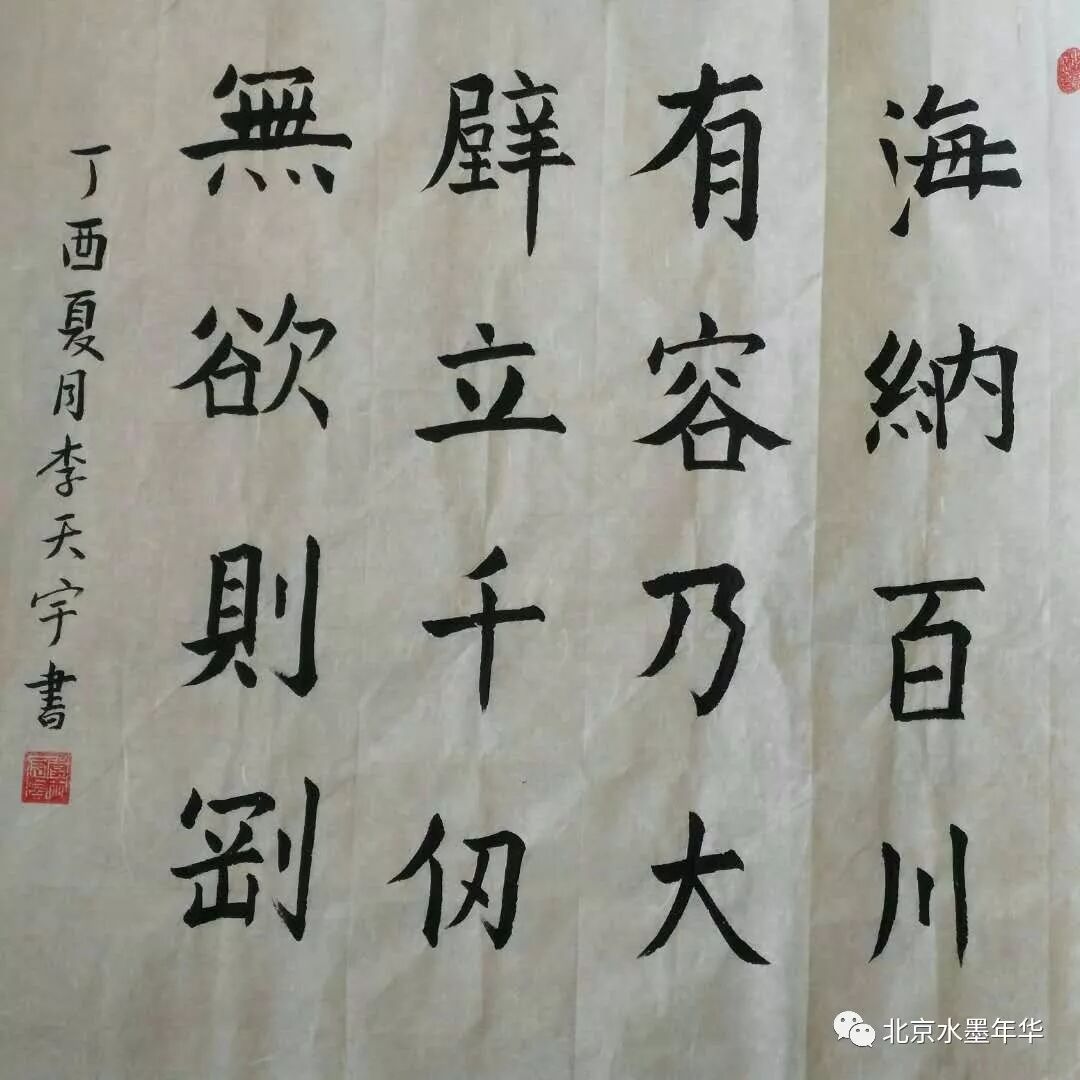 海納百川
有容乃大
壁立千仞
無欲則剛
丁酉夏月李天宇書
北京水墨年华